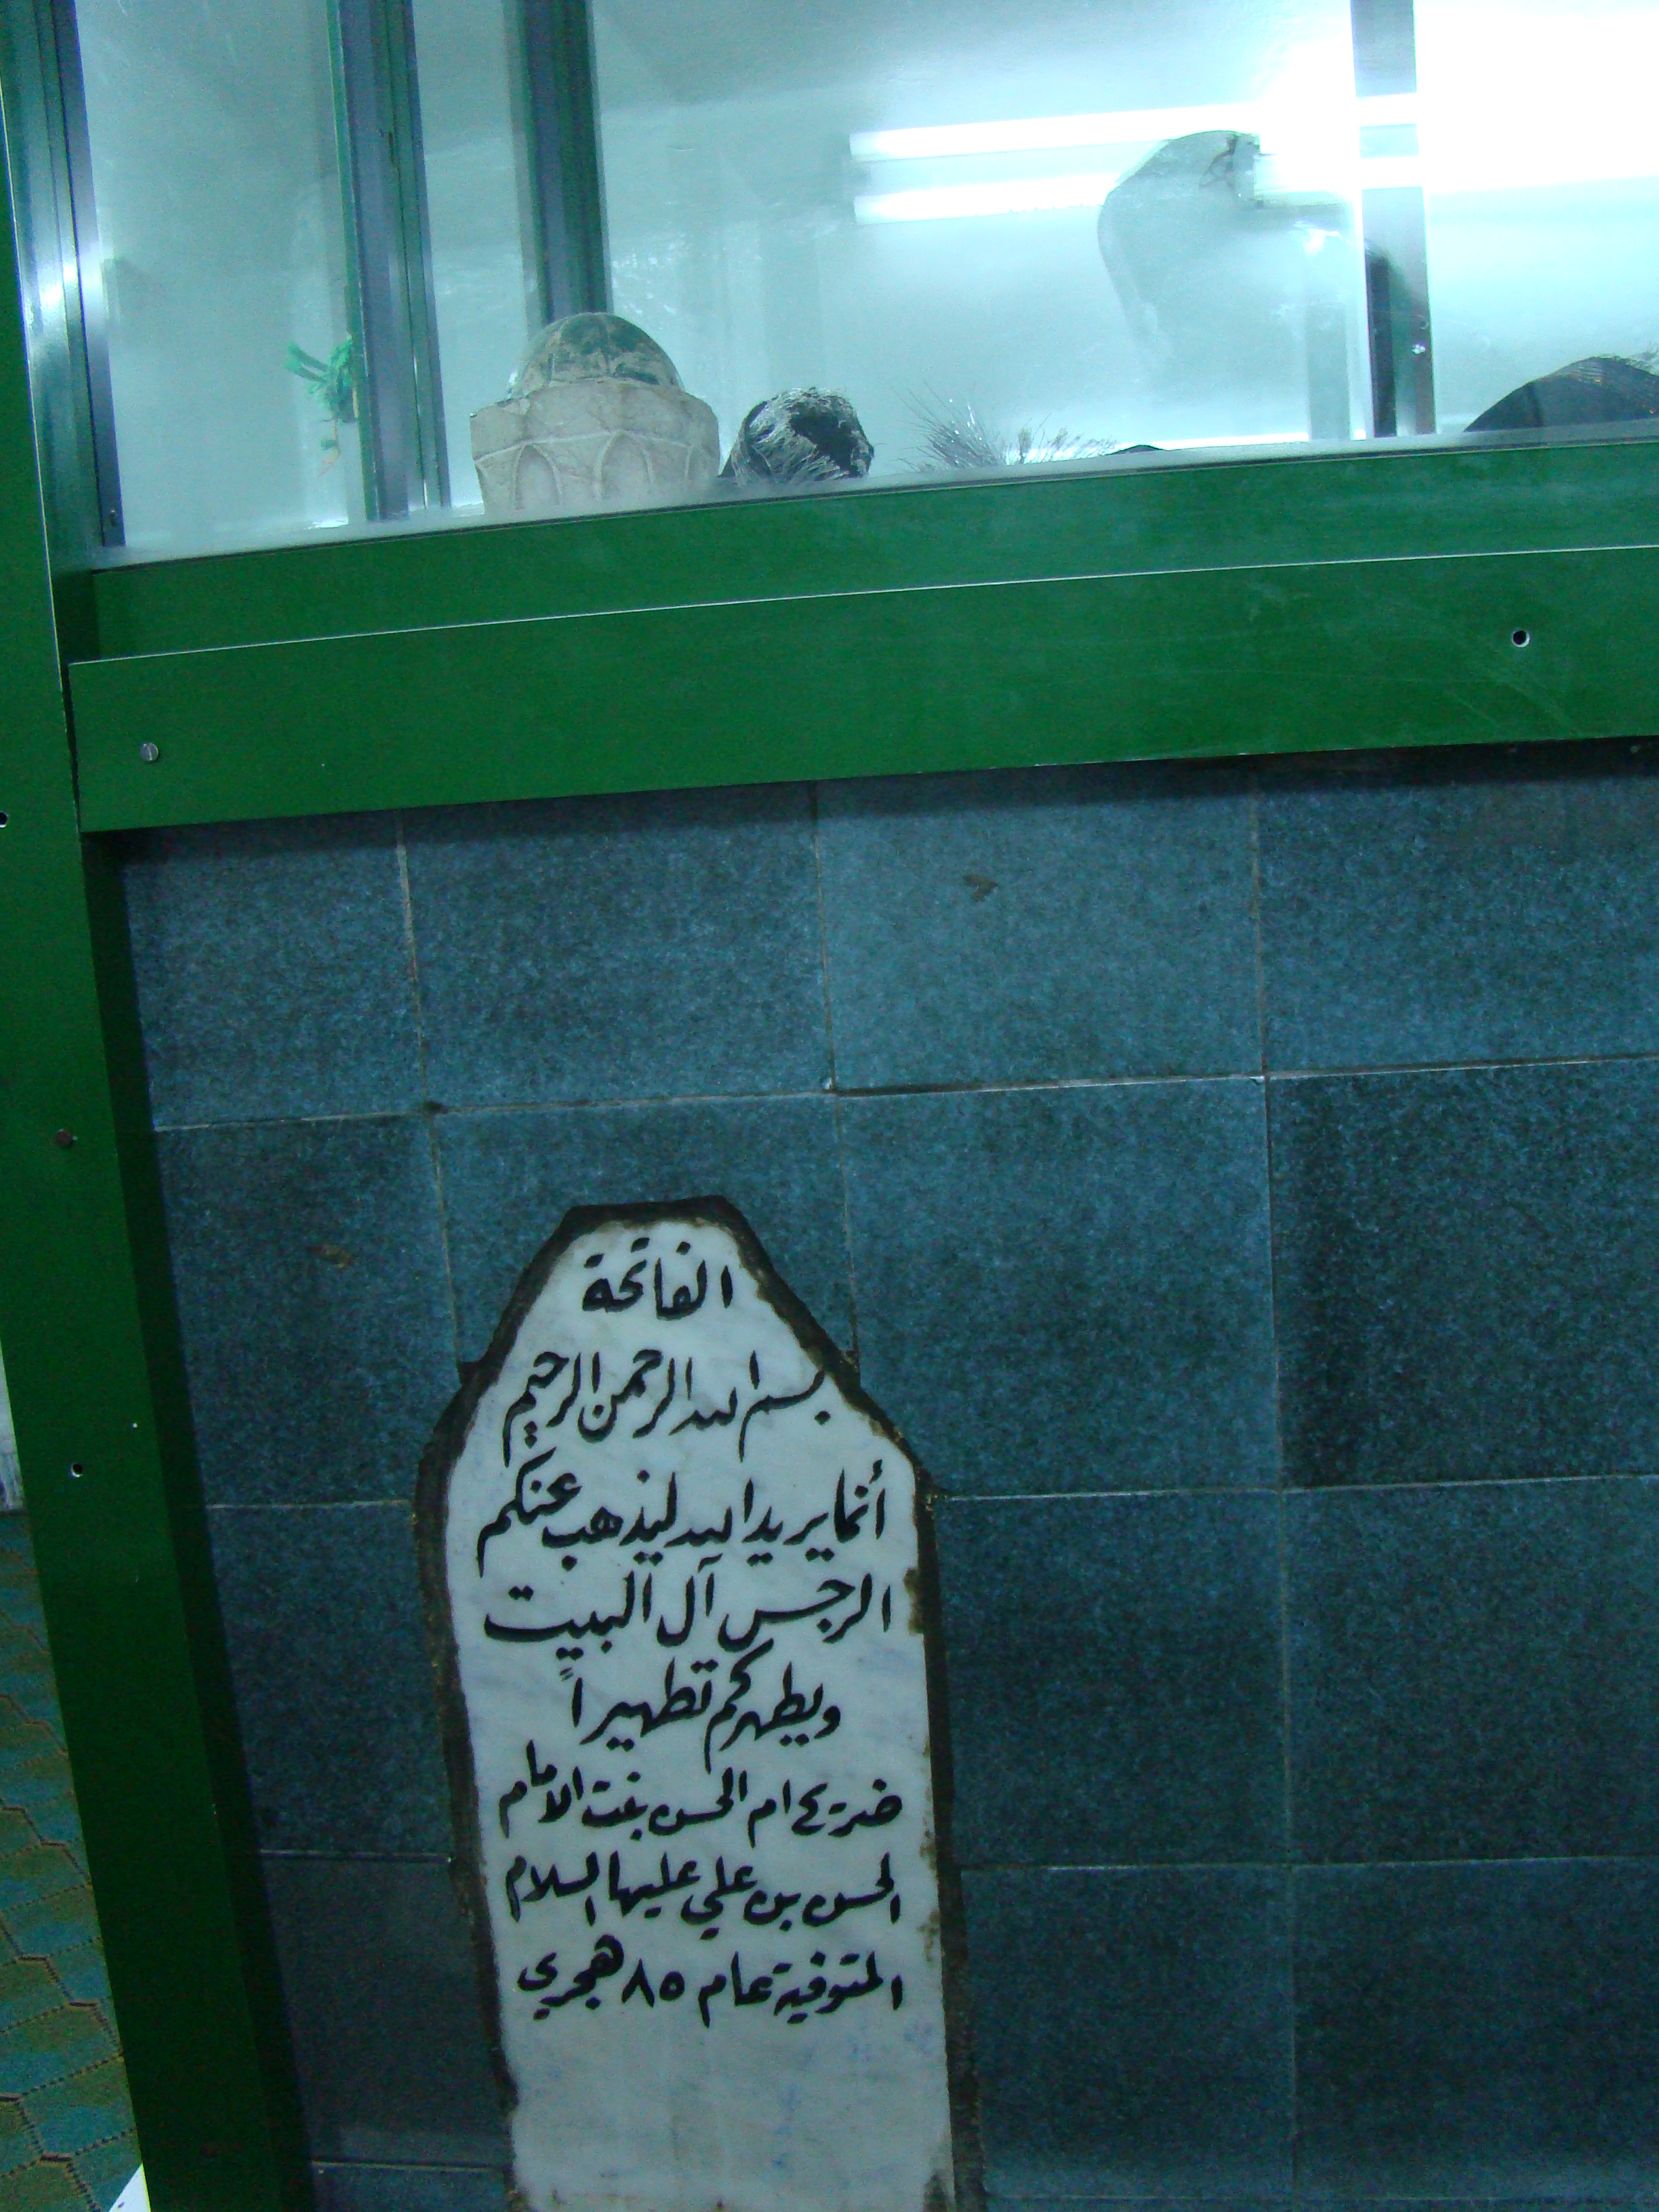 الفاتحة
بسم الله الرحمن الرحيم
أنما يريد الله ليذهب عنكم
الرجس آل البيت
ويطهركم تطهيراً
ضريح ام الحسن بنت الامام
الحسن بن علي عليها السلام
المتوفية عام ٨٥ هجري